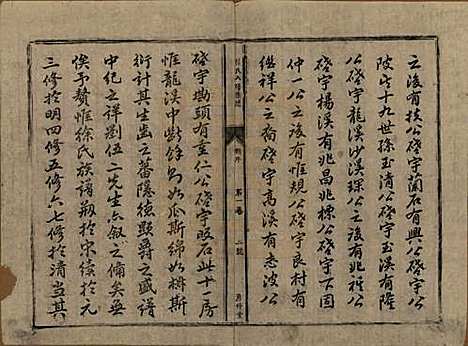 之後有技公啓宇蘭石有興公啓宇公
陂坵十九世孫玉清公啓宇玉溪有隆
公啓宇龍溪沙溪琛公之後有兆熊公
啓宇楊溪有兆昌兆標公啓宇下固
仲一公之後有惟規公啓宇良村有
繼祥公之裔啓宇高溪有志波公
徐氏八修族譜
例序
第一卷
二號
啓宇墈頭有重仁公啓宇版石此十一房
惟龍溪中斷餘則如瓜斯綿如樹斯
衍計其生齒之蕃隱德顯爵之盛譜
中紀之詳劉伍二先生六敘之備矣無
俟予贅惟徐氏族譜刱於宋續於元
三修於明四修五修六七修於清當其